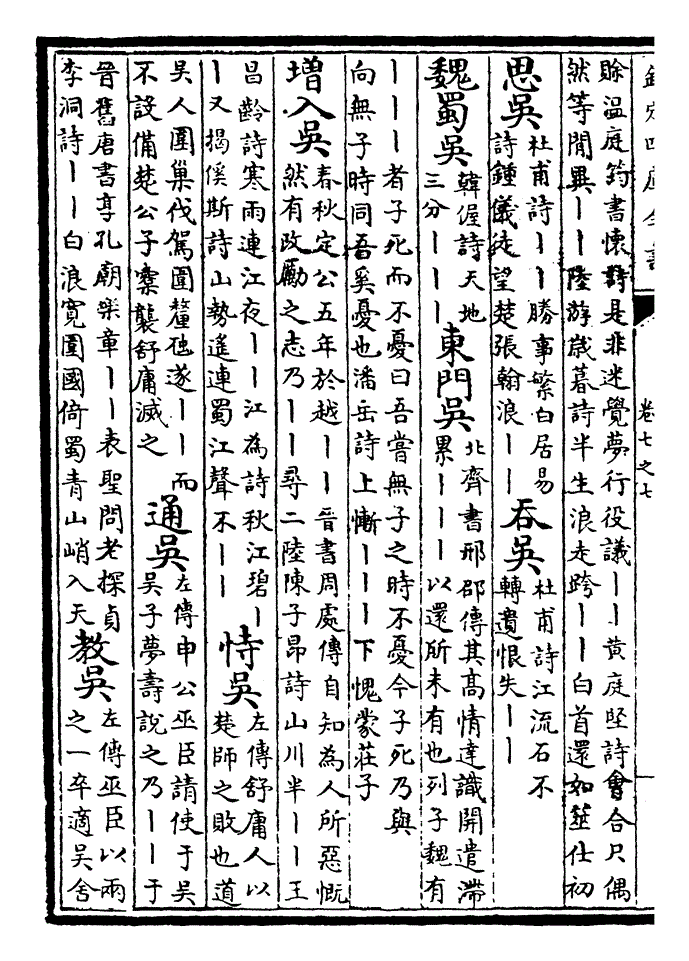 欽定四庫全書
卷七之七
賖温庭筠書懷詩是非迷覺夢行役議丨丨黄庭堅詩會合只偶
然等閒異丨丨陸游歲暮詩半生浪走跨丨丨白首還如筮仕初
思吳杜甫詩丨丨勝事繁白居易
詩鍾儀徒望楚張翰浪丨丨
吞吳杜甫詩江流石不
轉遺恨失丨丨
魏蜀吳韓偓詩天地
三分丨丨丨
東門吳北齊書邢邵傳其髙情達識開遣滯
累丨丨丨以還所未有也列子魏有
丨丨丨者子死而不憂曰吾嘗無子之時不憂今子死乃與
向無子時同吾奚憂也潘岳詩上慚丨丨丨下愧蒙莊子
增入吳春秋定公五年於越丨丨晉書周處傳自知為人所惡慨
然有改勵之志乃丨丨尋二陸陳子昂詩山川半丨丨王
昌齡詩寒雨連江夜丨丨江為詩秋江碧丨
丨又揭傒斯詩山勢遙連蜀江聲不丨丨
恃吳左傳舒庸人以
楚師之敗也道
吳人圍巢伐駕圍釐虺遂丨丨而
不設備楚公子槖襲舒庸滅之
通吳左傳申公巫臣請使于吳
吳子夢壽說之乃丨丨于
晉舊唐書享孔廟樂章丨丨表聖問老探貞
李洞詩丨丨白浪寛圍國倚蜀青山峭入天
教吳左傳巫臣以兩
之一卒適吳舍